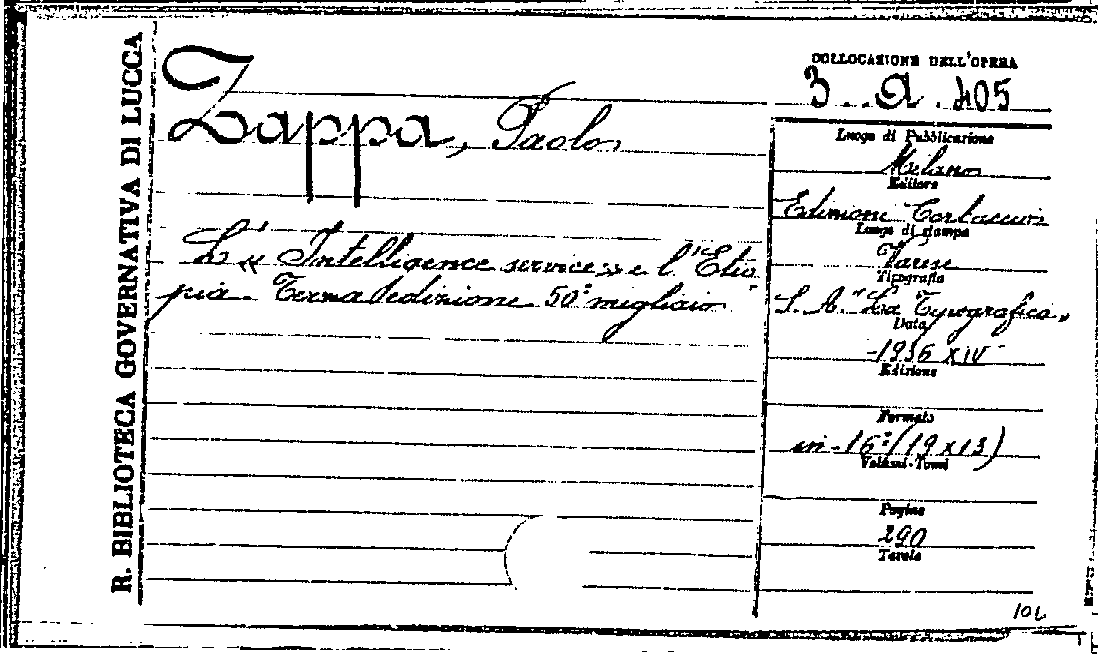 R. BIBLIOTECA GOVERNATIVA DI LUCCA
Zappa, Paolo
L' « Intelligence service » e l'Etio
pia. Terza edizione 50° migliaio
COLLOCAZIONE DELL'OPERA
3. A. 405
Luogo di Pubblicazione
Milano
Editore
Edizione Corbaccio
Luogo di stampa
Varese
Tipografia
S. A. "La Tipografica"
Data
1936 XIV
Edizione
Formato
in-16° (19x13)
Volumi-Tomi
Pagine
290
Tavole